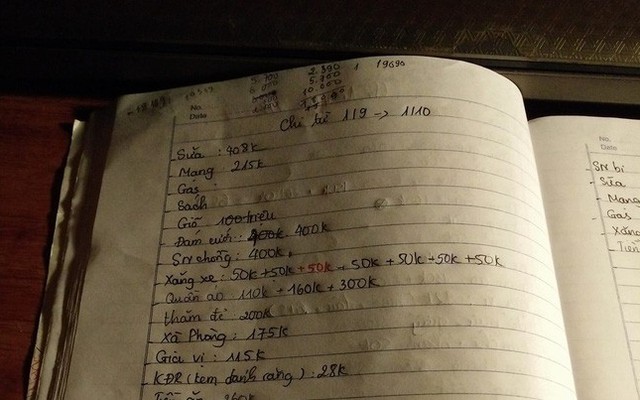 5.700 2.390 1 19690
6.000 5.300
10.000
No.
Date
Chi từ 1/9 -> 1/10
Sữa : 408k
Mạng 215k
Gas
Sách
Giỗ 100 triệu
Đám cưới : 400k
SN chồng : 400k
Xăng xe : 50k + 50k + 50k + 50k + 50k + 50k + 50k
Quần áo 110k + 160k + 300k
thăm đẻ 200k
Xà Phòng : 175k
Gia vị : 115k
KĐR (kem đánh răng) : 28k
Tiền ăn 260k
No.
Date
SN bi
Sữa
Mạng
Gas
Xăng
Tiền